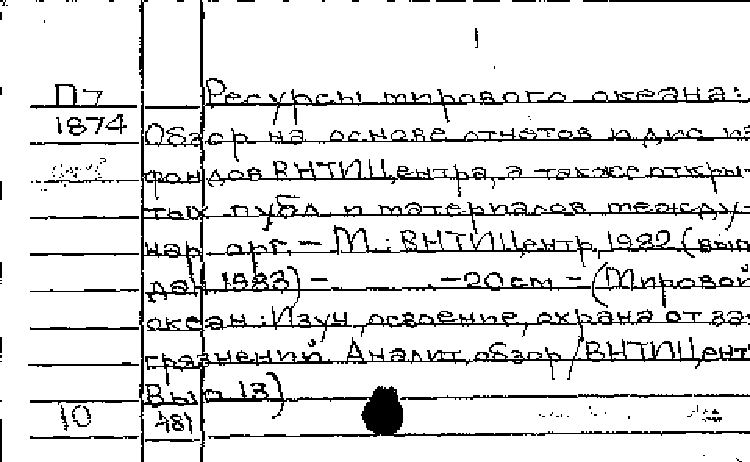 П7 Ресурсы мирового океана:
1874 Обзор на основе отчетов и дис из
фондов ВНТИЦентра, а также откры-
тых публ и материалов между-
нар орг. – М.: ВНТИЦентр, 1982 (вып
дан 1983) – – 20 см – (Мировой
океан: Изуч, освоение, охрана от заг
грязнений. Аналит, обзор / ВНТИЦент
Вып 13)
10 481